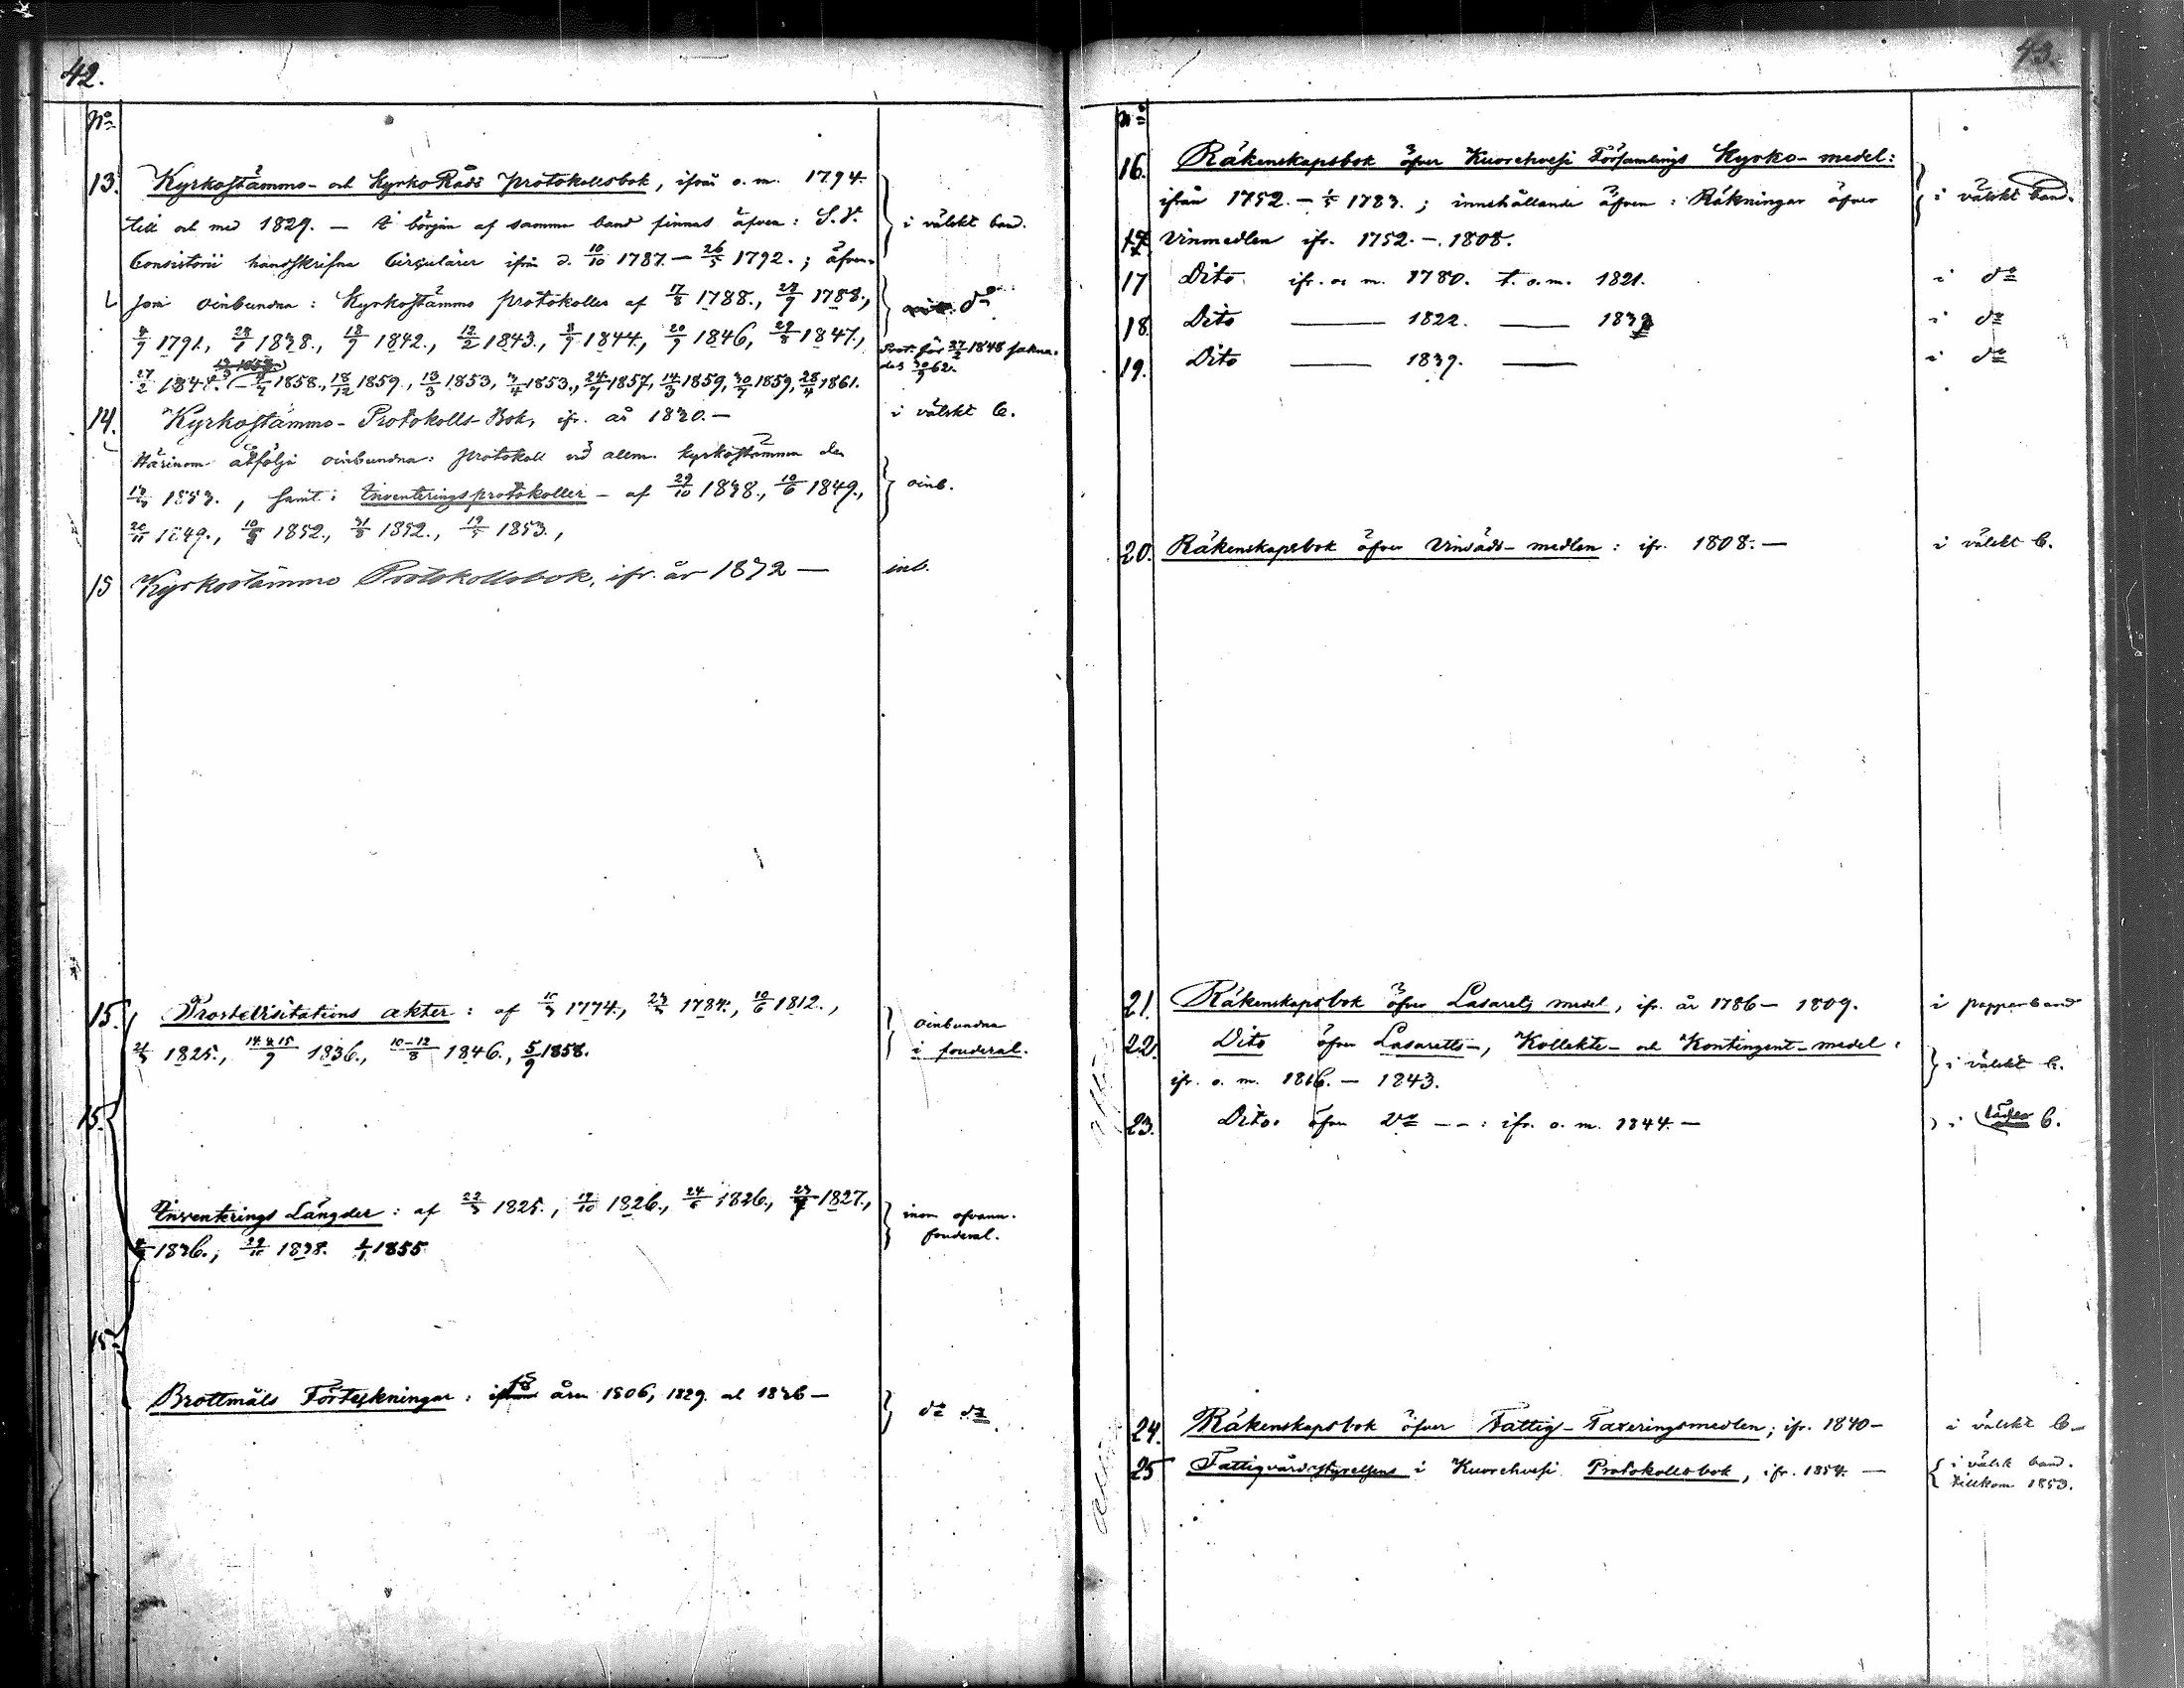 42.
No
13. Kyrkostämmo- och KyrkoRåds protokollsbok, ifrån o. m. 1794.
till och med 1829. — I början af samma band finnas äfven: S. V. } i välskt band.
Consistorii handskrifna Circulärer ifrån d. 10/10 1787. — 26/5 1792. ; äfven-
som oinbundna: Kyrkostämmo protokoller af 17/8 1788., 28/9 1788., } do
1791., 1838., 18/9 1842., 12/2 1843., 8/9 1844., 20/9 1846, 29/8 1847., Prot. för 1848 sakna-
27/2 1848. 1858., 18/12 1859., 13/3 1853, 3/4 1853., 24/9 1857, 14/3 1859, 30/9 1859, 28/4 1861. des 30/9 62.
14. Kyrkostämmo-Protokolls-Bok, ifr. år 1830. — i välskt b.
Härinom åtfölja oinbundna: protokoll vid allm. kyrkostämma den
1853. , samt: Inventeringsprotokoller - af 29/10 1838., 10/6 1849., } oinb.
20/11 1849., 1852., 31/8 1852., 1853.,
15 Kyrkostämmo Protokollsbok, ifr. år 1872 — inb.
15. Prostevisitations akter : af 1774., 1784., 10/6 1812., } oinbundna
1825., 14 & 15/9 1836., 10-12/8 1846., 5/9 1858. i fouderal.
15.
Inventerings Längder : af 1825., 1826., 1826., 1827., } inom ofvann.
1836., 29/10 1838. 1/1 1855 fouderal.
15.
Brottmåls Förteckningar : åren 1806, 1829. och 1836 — } do do.
43.
No
16. Räkenskapsbok öfver Kuorehvesi Församlings Kyrko-medel: } i välskt band.
ifrån 1752. — 1783. ; innehållande äfven : Räkningar öfver
17 Vinmedlen ifr. 1752. — 1808.
17 Dito ifr. o. m. 1780. t. o. m. 1821. i do
18. Dito — 1822. — 1839 i do
19. Dito — 1839. — i do
20. Räkenskapsbok öfver Vinsäds-medlen : ifr. 1808. — i välskt b.
21. Räkenskapsbok öfver Lasaretts medel, ifr. år 1786 — 1809. i pappersband
22. Dito öfver Lasaretts-, Kollekte- och Kontingent-medel : } i välskt b.
ifr. o. m. 1816. — 1843.
23. Dito. öfver do — — : ifr. o. m. 1844. — i läder b.
24. Räkenskapsbok öfver Fattig-Taxeringsmedlen ; ifr. 1840 — i välskt b.
25 Fattigvårdsstyrelsens i Kuorehvesi Protokollsbok, ifr. 1854. — { i välsk band.
tillkom 1853.